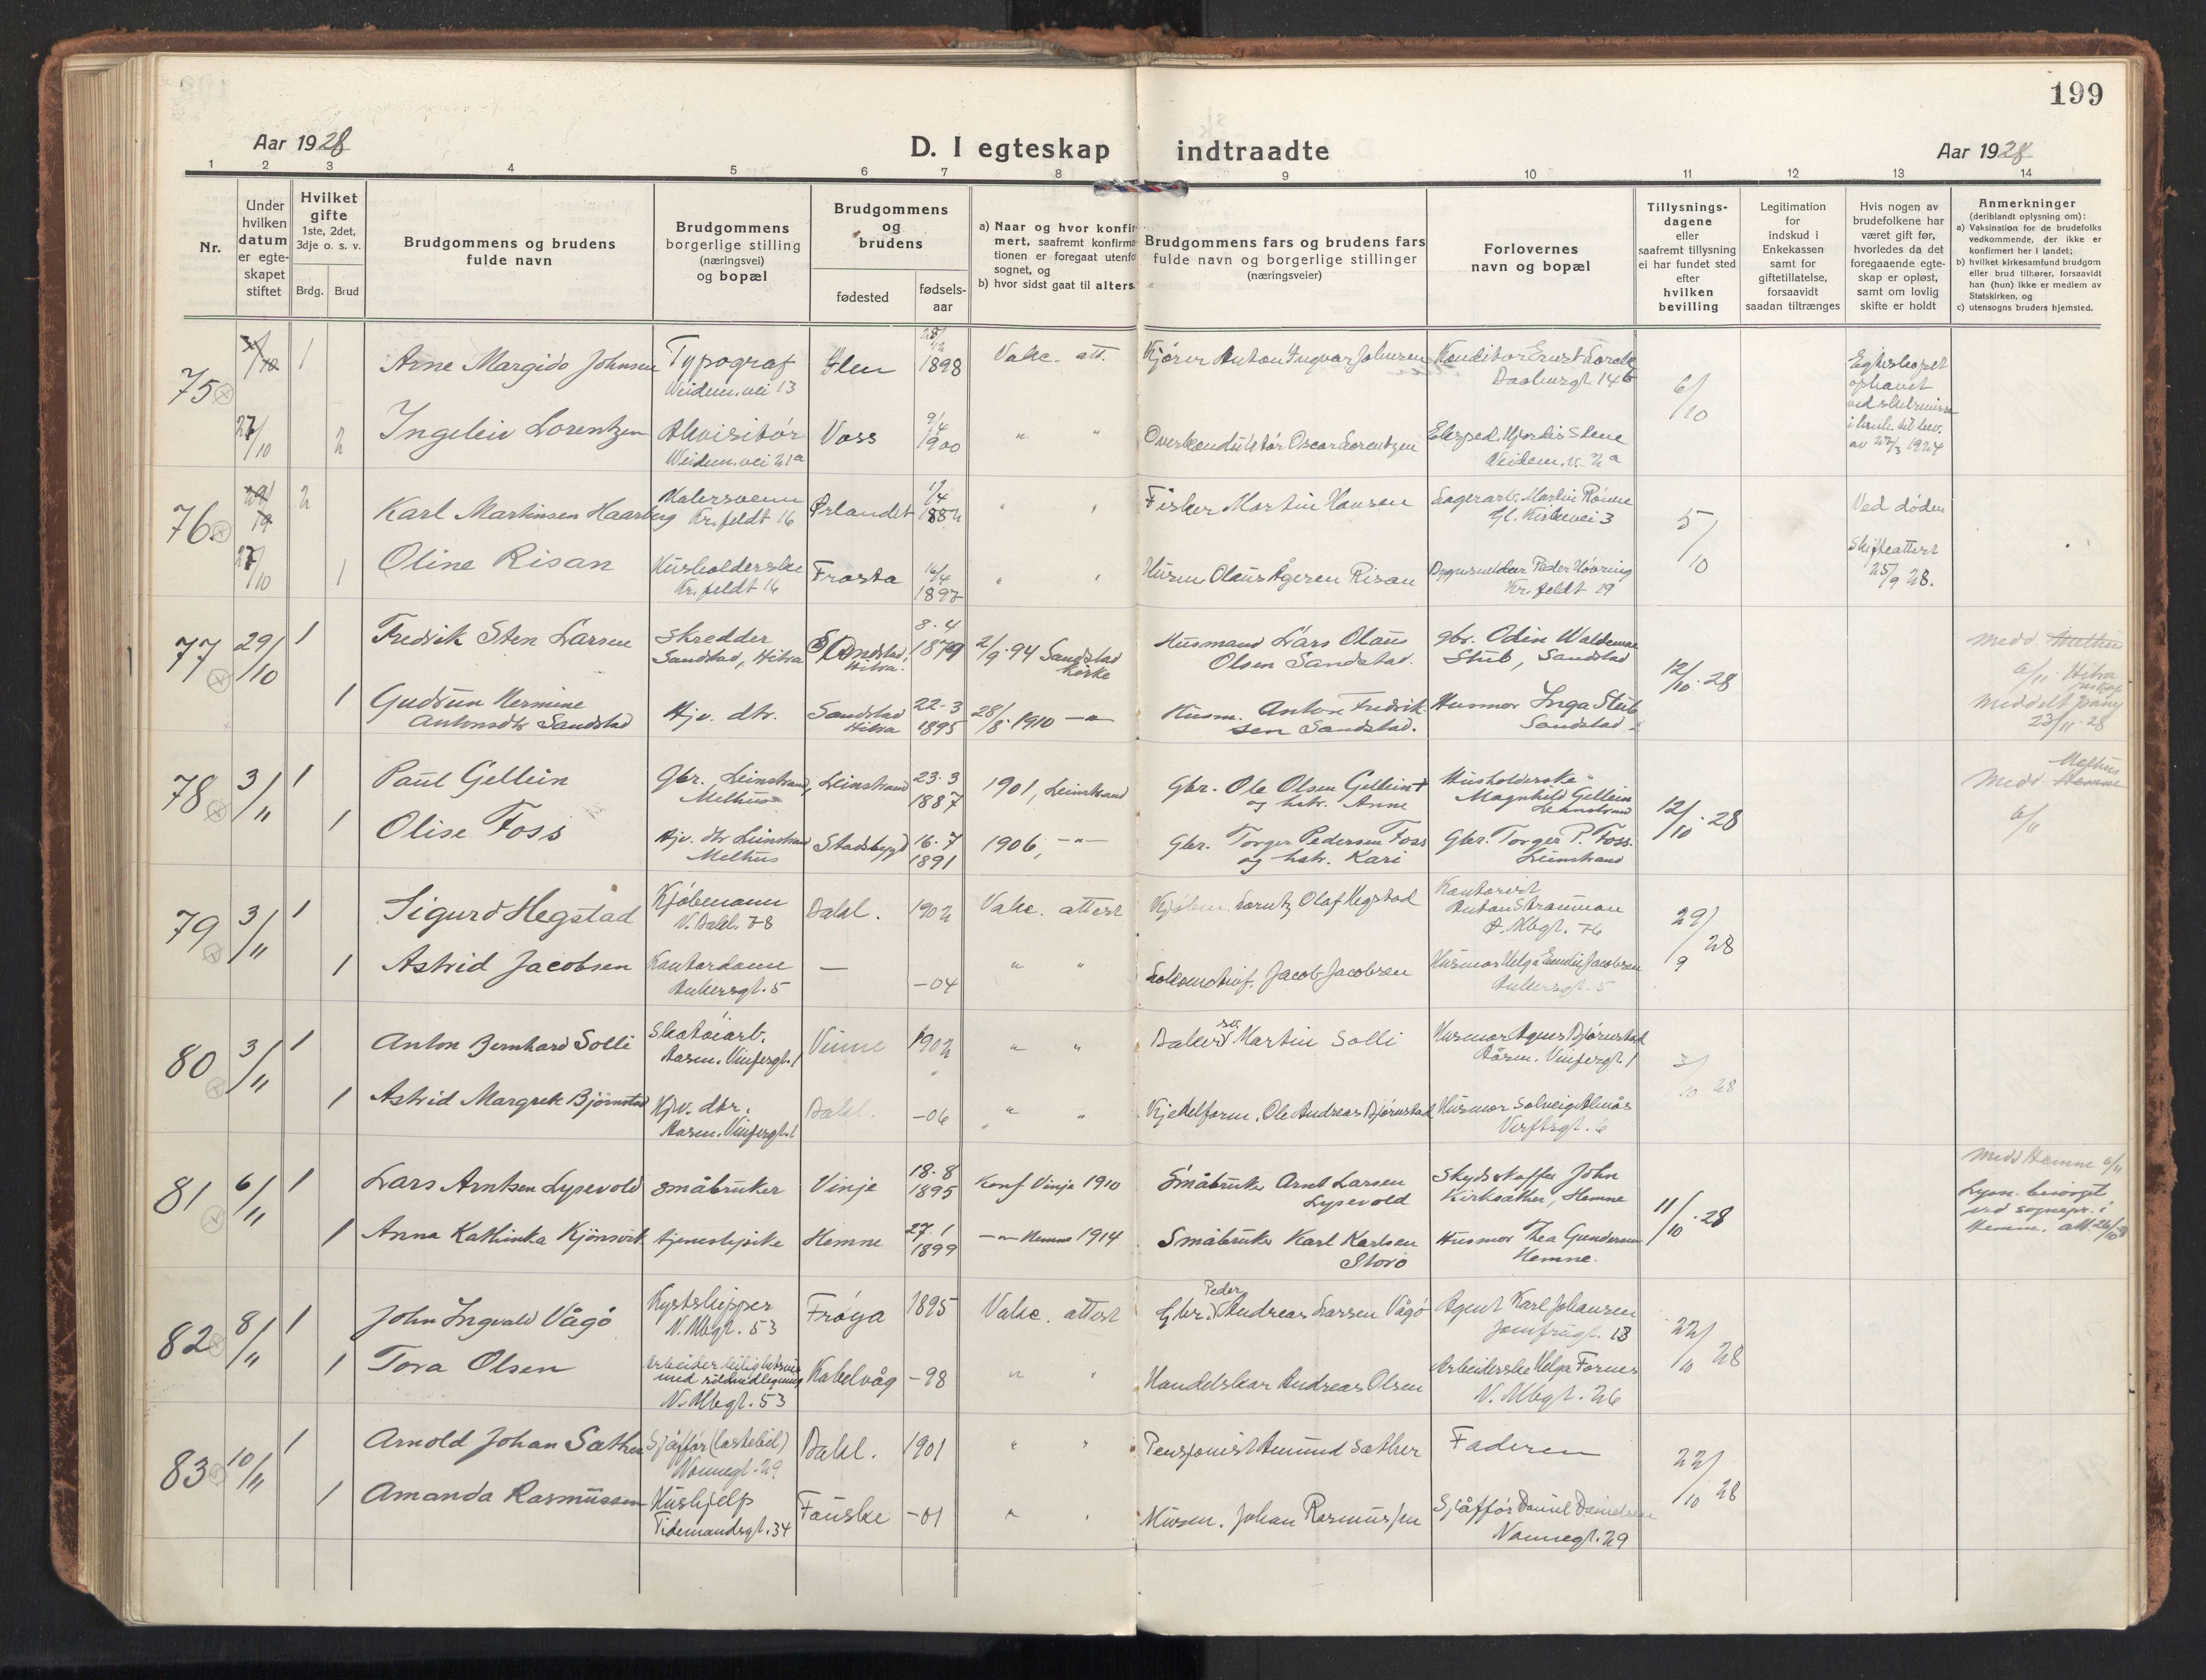 199
Aar 1928
D. I egteskap indtraadte
Aar 1928
1 2 3 4 5 6 7 8 9 10 11 12 13 14
Nr.
Under
hvilken
datum
er egte-
skapet
stiftet
Hvilket
gifte
1ste, 2det,
3dje o. s. v.
Brdg. Brud
Brudgommens og brudens
fulde navn
Brudgommens
borgerlige stilling
(næringsvei)
og bopæl
Brudgommens
og
brudens
fødested
fødsels-
aar
a) Naar og hvor konfir
mert, saafremt konfirma
tionen er foregaat utenfo
sognet, og
b) hvor sidst gaat til alters.
Brudgommens fars og brudens fars
fulde navn og borgerlige stillinger
(næringsveier)
Forlovernes
navn og bopæl
Tillysnings-
dagene
eller
saafremt tillysning
ei har fundet sted
efter
hvilken
bevilling
Legitimation
for
indskud i
Enkekassen
samt for
giftetillatelse,
forsaavidt
saadan tiltrænges
Hvis nogen av
brudefolkene har
været gift før,
hvorledes da det
foregaaende egte-
skap er opløst,
samt om lovlig
skifte er holdt
Anmerkninger
(deriblandt oplysning om):
a) Vaksination for de brudefolks
vedkommende, der ikke er
konfirmert her i landet;
b) hvilket kirkesamfund brudgom
eller brud tilhører, forsaavidt
han (hun) ikke er medlem av
Statskirken, og
c) utensogns bruders hjemsted.
75 1 Arne Margido Johnsen Typograf Ilen 1898 Vakc. att. Kjører Anton Ingvar Johnsen Konditor Ernst
Veidem. vei 13 14b 6/10
27/10 2 Ingeleiv Lorentzen Akvisitør Voss 9/4 1900 " " Overkonduktør Oscar Lorentzen Eksped. Hjørdis Stene
Veidem. vei 21a Veidem. v. 2a
Egteskapet
ophævet
ved
av 27/3 1924
76 2 Karl Martinsen Haarberg Malersvenn Ørlandet 17/4 1882 " " Fisker Martin Hansen Lagerarb. Martin Rönne
Kr. feldt 16 Gl. Kirkevei 3 5/10 Ved døden
27/10 1 Oline Risan Husholderske Frosta 16/4 1897 " " Husm. Olaus Ågeren Risan Peder Hovring
Kr. feldt 16 Kr. feldt 19
Skifteattest
25/9 28.
77 29/10 1 Fredrik Sten Larsen skredder Sandstad, Hitra 8.4 1879 2/9.94 Sandstad kirke Husmand Lars Olaus gbr. Odin Waldemar
Sandstad, Hitra Olsen Sandstad. Stub, Sandstad 12/10.28
1 Gudrun Hermine Hjv. dtr. Sandstad 22-3 28/8.1910 —"— Husm. Anton Fredrik- Husmor Inga Stub
Antonsdtr Sandstad Hitra 1895 sen Sandstad. Sandstad
6/11. Hitra
Meddelt
23/11.28
78 3/11 1 Paul Gellein Gbr. Leinstrand, Leinstrand 23.3 1901, Leinstrand Gbr. Ole Olsen Gellein + Husholderske
Melhus 1887 og hstr. Anne Magnhild Gellein
Leinstrand 12/10.28
1 Olise Foss Hjv. dtr Leinstrand Stadsbygd 16.7 1906, —"— Gbr. Torger Pedersen Foss Gbr. Torger P. Foss.
Melhus 1891 og hstr. Kari Leinstrand
Melhus
Medd. Hemne
6/11
79 3/11 1 Sigurd Hegstad Kjøbmann Bakl. 1902 Vakc. attest Kjøbm. Lorntz Olaf Hegstad Kontorist
V. Bakl. 78 Anton Strømman
Ø. Mbgt. 76 29/9 28
1 Astrid Jacobsen Kontordame — -04 " " Jacob Jacobsen Husmor Helga Emilie Jacobsen
Ankersgt. 5 Ankersgt. 5
80 3/11 1 Anton Bernhard Solli Skotøiarb. Vinne 1902 " " Baker sv. Martin Solli Husmor Agnes Bjørnstad
Aasm. Vinjesgt. 1 Aasm. Vinjesgt. 1 3/10 28
1 Astrid Margrete Bjørnstad Hjv. dtr. Bakl. -06 " " Kjedelform. Ole Andreas Bjørnstad Husmor Solveig Almås
Aasm. Vinjesgt. 1 Verftsgt. 6
81 6/11 1 Lars Arntsen Lysevold småbruker Vinje 18.8 1895 Konf Vinje 1910 Småbruker Arnt Larsen Skydsskaffer John
Lysevold Kirksæther, Hemne 11/10.28
1 Anna Kathinka Kjönsvik tjenestpike Hemne 27.1 1899 —"— Hemne 1914 Småbruker Karl Karlsen Husmor Thea Gundersen
Storö Hemne.
Medd Hemne 6/11
Lysn. besörget
ved sognepr. i
Hemne. att. 26/10
82 8/11 1 John Ingvald Vågö Kystskipper Frøya 1895 Vakc. attest Gbr. Peder Andreas Larsen Vågö Agent Karl Johansen
N. Mbgt. 53 Jomfrugt. 13 22/10 28
1 Tora Olsen Arbeider Kabelvåg -98 " " Handelskar Andreas Olsen Arbeiderske Helga Fornes
N. Mbgt. 53 N. Mbgt. 26
83 10/11 1 Arnold Johan Sæther Sjåffør (lastebil) Bakl. 1901 " " Pensjonist Amund Sæther Faderen
Nonnegt. 29 22/10 28
1 Amanda Rasmussen Hushjelp Fauske -01 " " Johan Rasmussen Sjåffør Daniel Danielsen
Tidemandsgt. 34 Nonnegt. 29